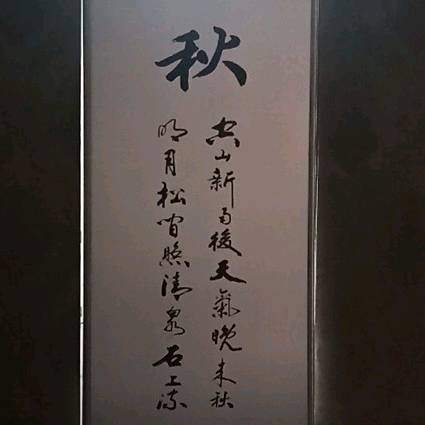 秋
空山新雨後天氣晚来秋
明月松间照清泉石上流